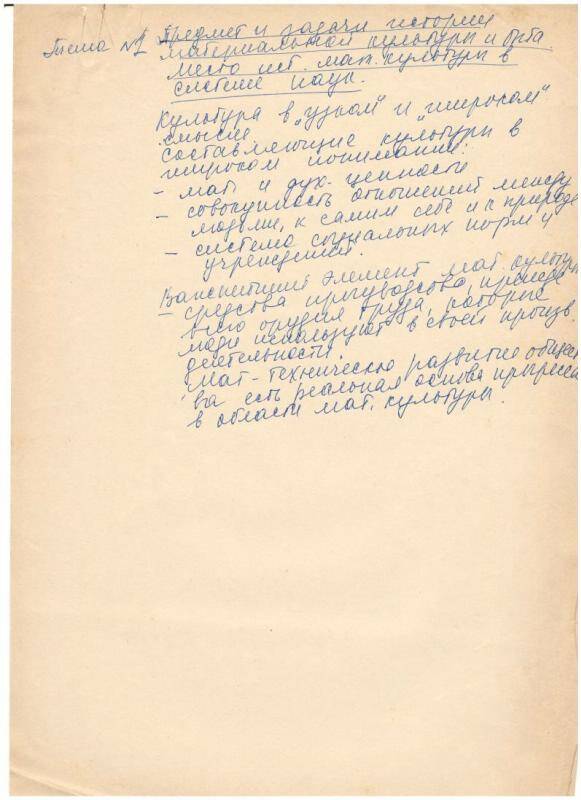 Тема №1 Предмет и задачи истории
материальной культуры и быта.
Место ист. мат. культуры в
системе наук.
Культура в "узком" и "широком"
смысле.
Составляющие культуры в
широком понимании:
- мат. и дух. ценности
- совокупность отношений между
людьми, к самим себе и к природе
- система социальных норм и
учреждений.
Важнейший элемент мат. культуры
- средства производства, прежде
всего орудия труда, которые
люди используют в своей произв.
деятельности.
Мат-техническое развитие общест
ва есть реальная основа прогресса
в области мат. культуры.